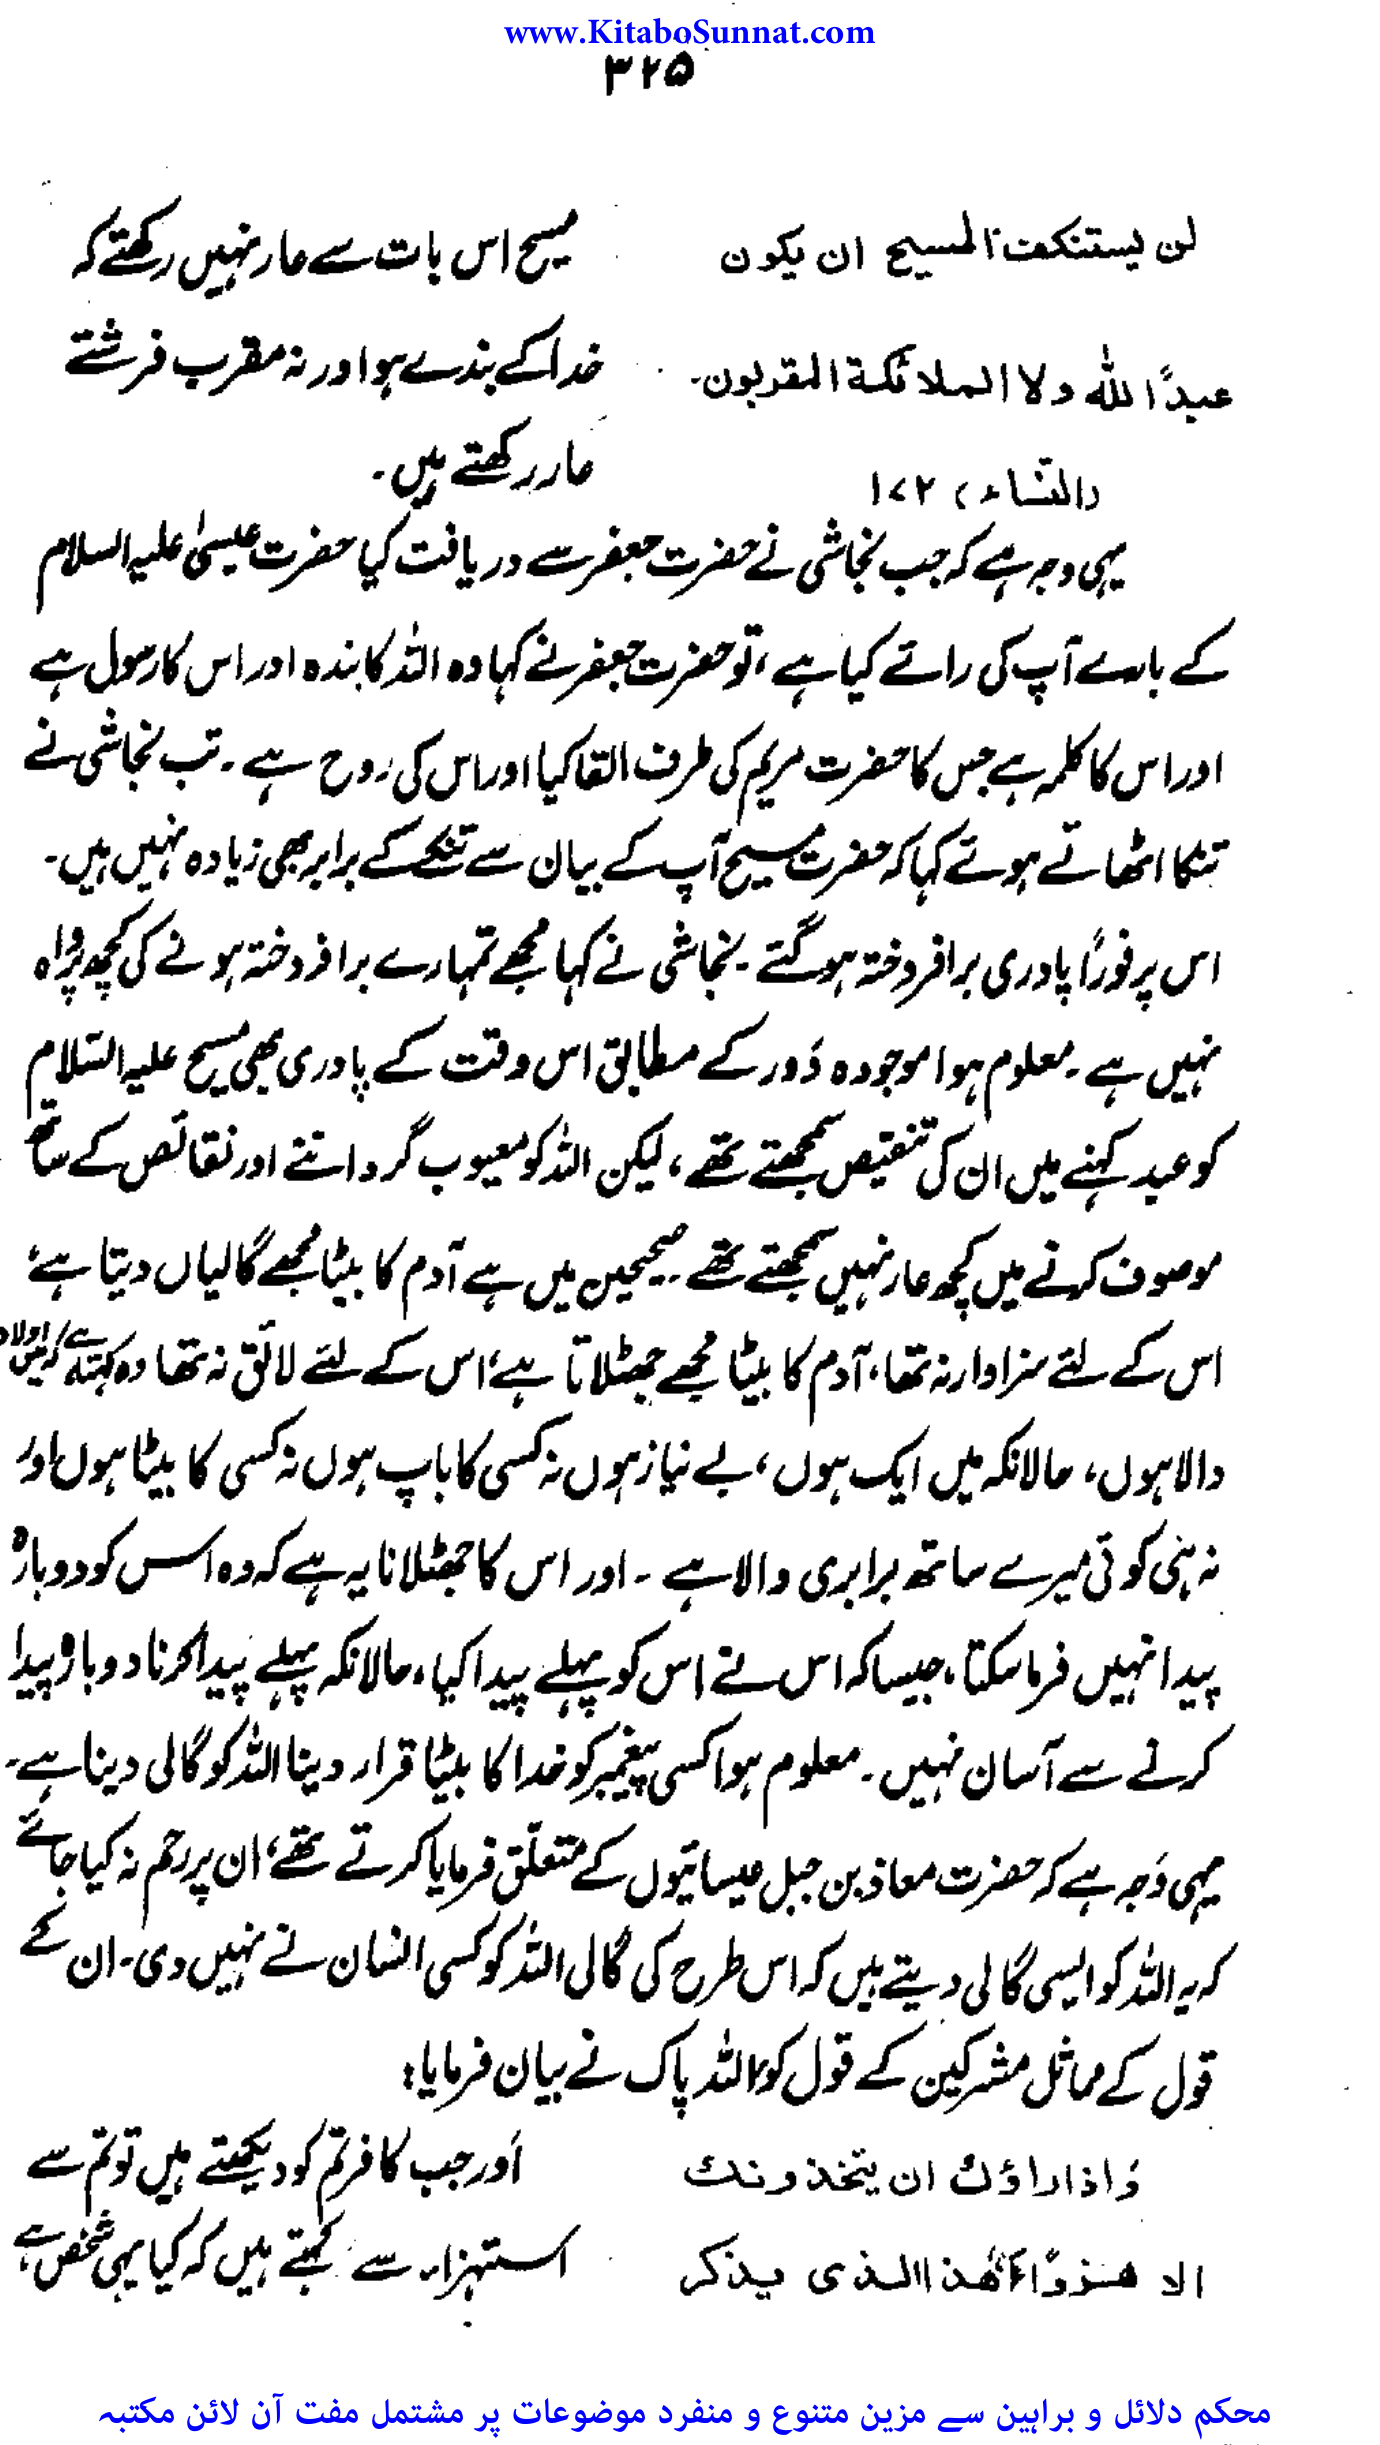 www.KitaboSunnat.com
۳۲۵
لن یستنکف المسیح ان یکون
مسیح اس بات سے عار نہیں رکھتے کہ
عبدًا للہ ولا الملائکۃ المقربون۔
خدا کے بندے ہو اور نہ مقرب فرشتے
(النساء، ۱۷۲
عار رکھتے ہیں۔
یہی وجہ ہے کہ جب نجاشی نے حضرت جعفر سے دریافت کیا حضرت عیسیٰ علیہ السلام
کے بارے آپ کی رائے کیا ہے، تو حضرت جعفر نے کہا وہ اللہ کا بندہ اور اس کا رسول ہے
اور اس کا کلمہ ہے جس کا حضرت مریم کی طرف القا کیا اور اس کی رُوح ہے۔ تب نجاشی نے
تنکا اٹھاتے ہوئے کہا کہ حضرت مسیح آپ کے بیان سے تنکے کے برابر بھی زیادہ نہیں ہیں۔
اس پر فورًا پادری برافروختہ ہو گئے۔ نجاشی نے کہا مجھے تمہارے برافروختہ ہونے کی کچھ پرواہ
نہیں ہے۔ معلوم ہوا موجودہ دَور کے مطابق اس وقت کے پادری بھی مسیح علیہ السّلام
کو عبد کہنے میں ان کی تنقیص سمجھتے تھے، لیکن اللہ کو معیوب گرداننے اور نقائص کے ساتھ
موصوف کرنے میں کچھ عار نہیں سمجھتے تھے۔ صحیحین میں ہے آدم کا بیٹا مجھے گالیاں دیتا ہے؛
اس کے لئے سزاوار نہ تھا، آدم کا بیٹا مجھے جھٹلاتا ہے؛ اس کے لئے لائق نہ تھا وہ کہتا ہے کہ میں اولاد
والا ہوں، حالانکہ میں ایک ہوں، بے نیاز ہوں نہ کسی کا باپ ہوں نہ کسی کا بیٹا ہوں اور
نہ ہی کوئی میرے ساتھ برابری والا ہے۔ اور اس کا جھٹلانا یہ ہے کہ وہ اس کو دوبارہ
پیدا نہیں فرما سکتا، جیسا کہ اس نے اس کو پہلے پیدا کیا، حالانکہ پہلے پیدا کرنا دوبارہ پیدا
کرنے سے آسان نہیں۔ معلوم ہوا کسی پیغمبر کو خدا کا بیٹا قرار دینا اللہ کو گالی دینا ہے۔
یہی وَجہ ہے کہ حضرت معاذ بن جبل عیسائیوں کے متعلّق فرمایا کرتے تھے؛ ان پر رحم نہ کیا جائے
کہ یہ اللہ کو ایسی گالی دیتے ہیں کہ اس طرح کی گالی اللہ کو کسی انسان نے نہیں دی۔ ان کے
قول کے مماثل مشرکین کے قول کو اللہ پاک نے بیان فرمایا:
وَاذا راٰوک ان یتخذونک
اَور جب کافر تم کو دیکھتے ہیں تو تم سے
الا ھزوًا أھٰذا الذی یذکر
استہزاء سے کہتے ہیں کہ کیا یہی شخص ہے،
محکم دلائل و براہین سے مزین متنوع و منفرد موضوعات پر مشتمل مفت آن لائن مکتبہ